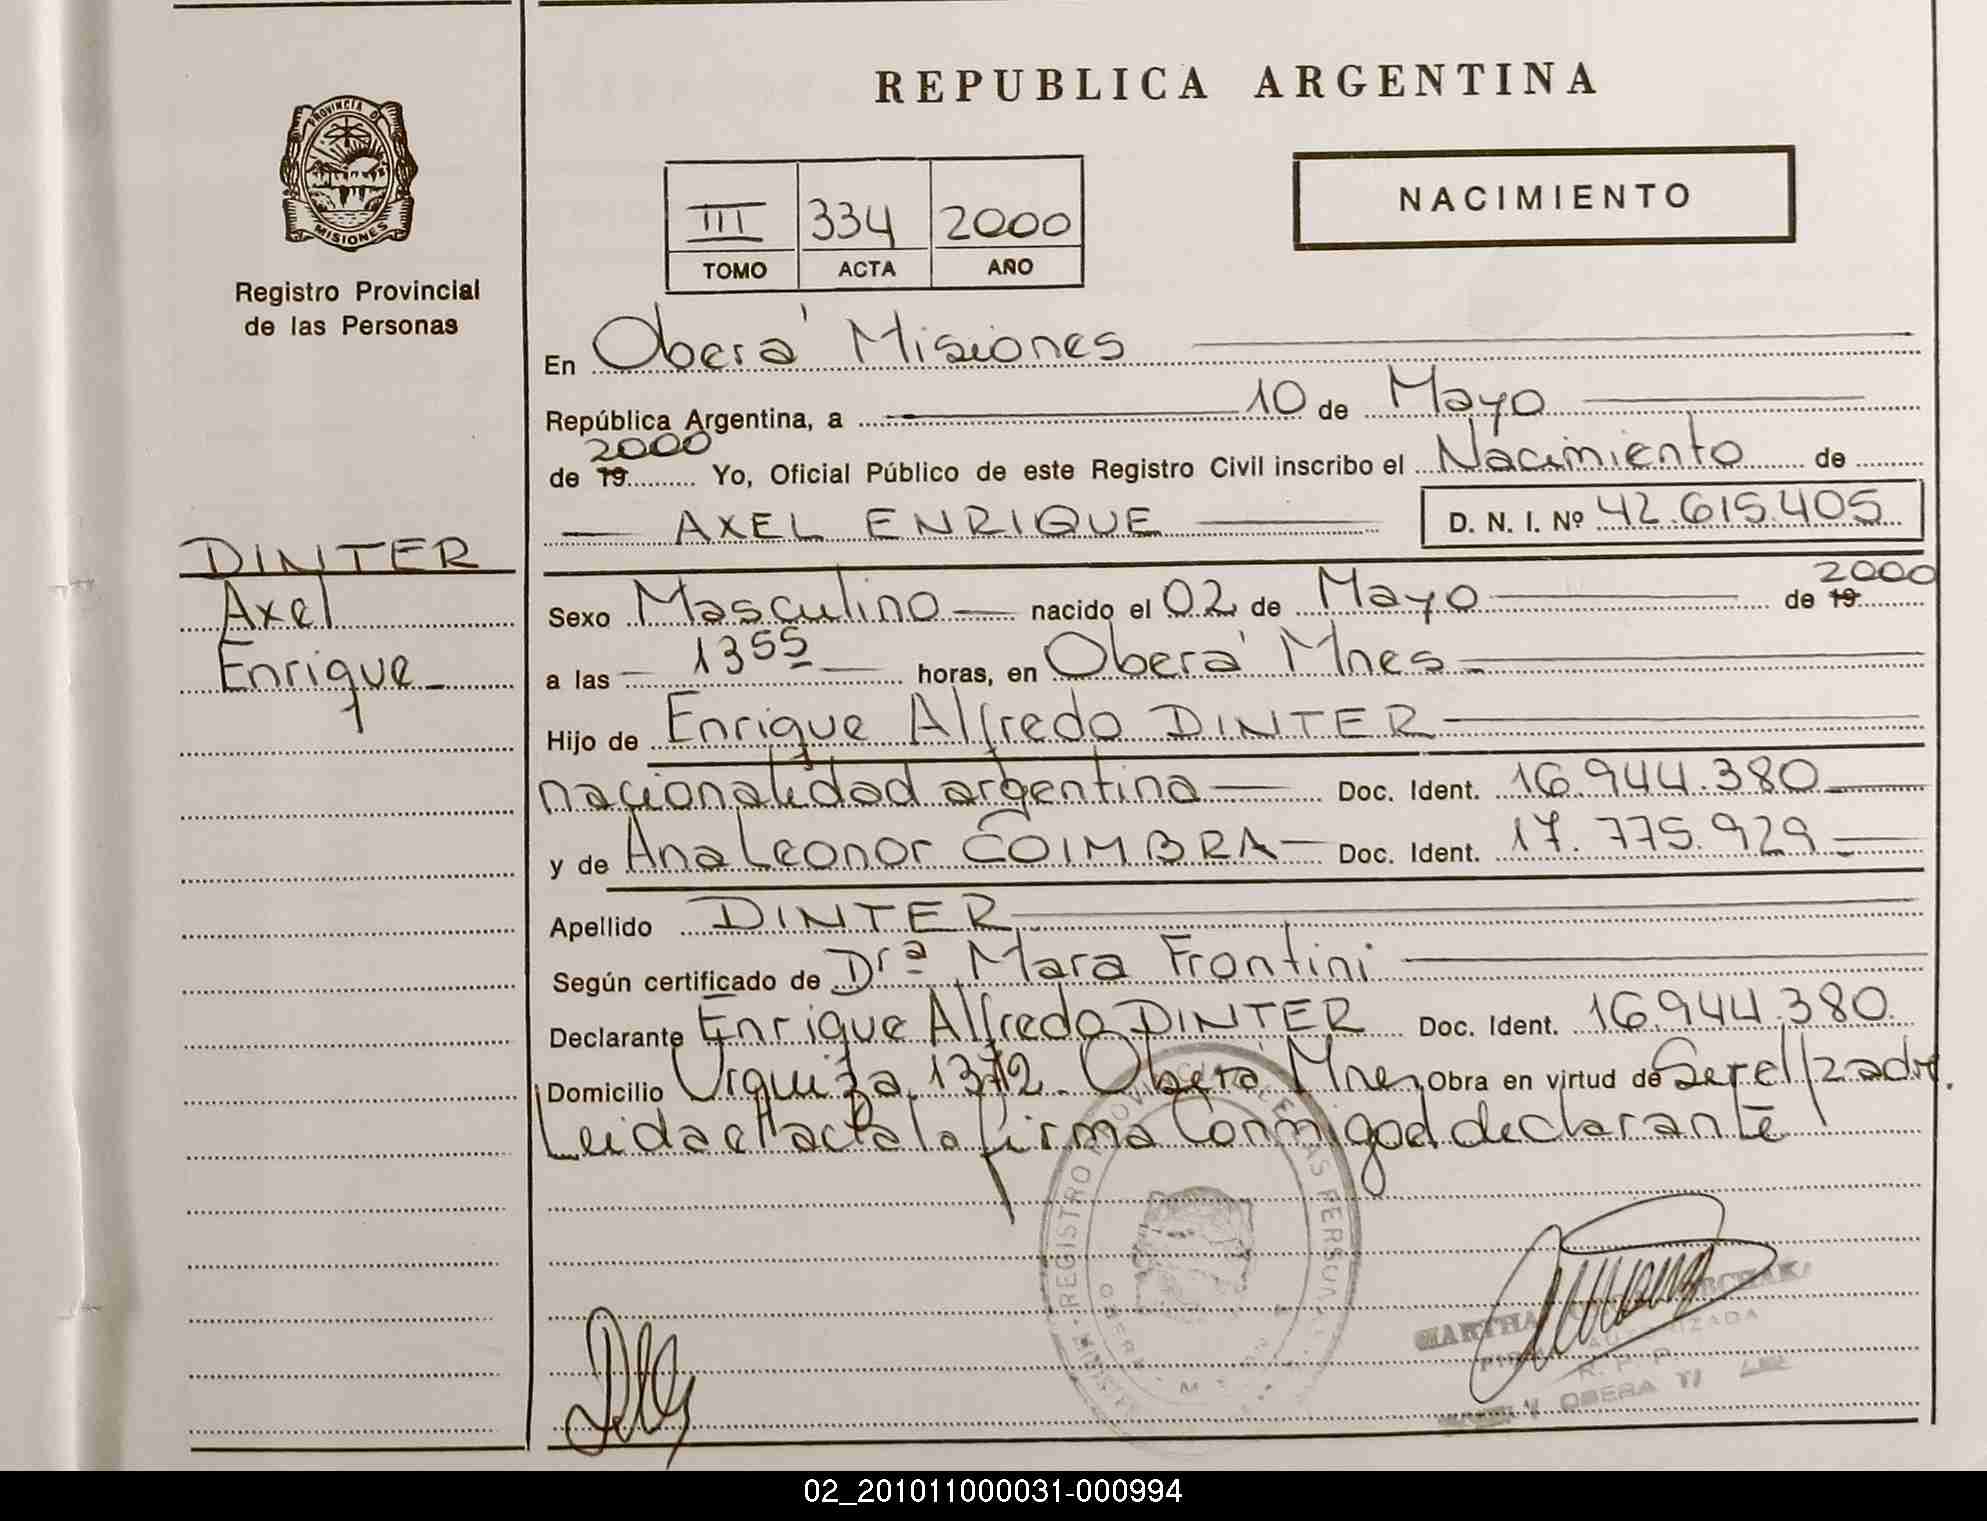 REPUBLICA ARGENTINA
PROVINCIA DE
MISIONES
Registro Provincial
de las Personas
NACIMIENTO
III 334 2000
TOMO ACTA AÑO
En Oberá Misiones
República Argentina, a 10 de Mayo
2000
de 19 Yo, Oficial Público de este Registro Civil inscribo el Nacimiento de
AXEL ENRIQUE D. N. I. Nº 42.615.405
DINTER
Axel
Enrique
2000
Sexo Masculino nacido el 02 de Mayo de 19
a las 1355 horas, en Oberá Mnes
Hijo de Enrique Alfredo DINTER
nacionalidad argentina Doc. Ident. 16.944.380
y de Ana Leonor COIMBRA Doc. Ident. 17.775.929
Apellido DINTER
Según certificado de Drª Mara Frontini
Declarante Enrique Alfredo DINTER Doc. Ident. 16.944.380
Domicilio Urquiza 1372 Oberá Mnes Obra en virtud de Ser el Padre.
Leida el acta la firma Conmigo el declarante
REGISTRO PROVINCIAL DE LAS PERSONAS
MARTHA
AUTORIZADA
R. P. P.
OBERA
02_201011000031-000994